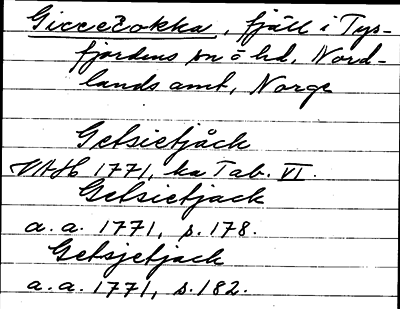 Giccečokka, fjäll i Tys-
fjordens sn o hd, Nord-
lands amt, Norge
Getsietjåck
VAH 1771, ka Tab. VI.
Getsietjack
a. a. 1771, s. 178.
Getsjetjack
a. a. 1771, s. 182.